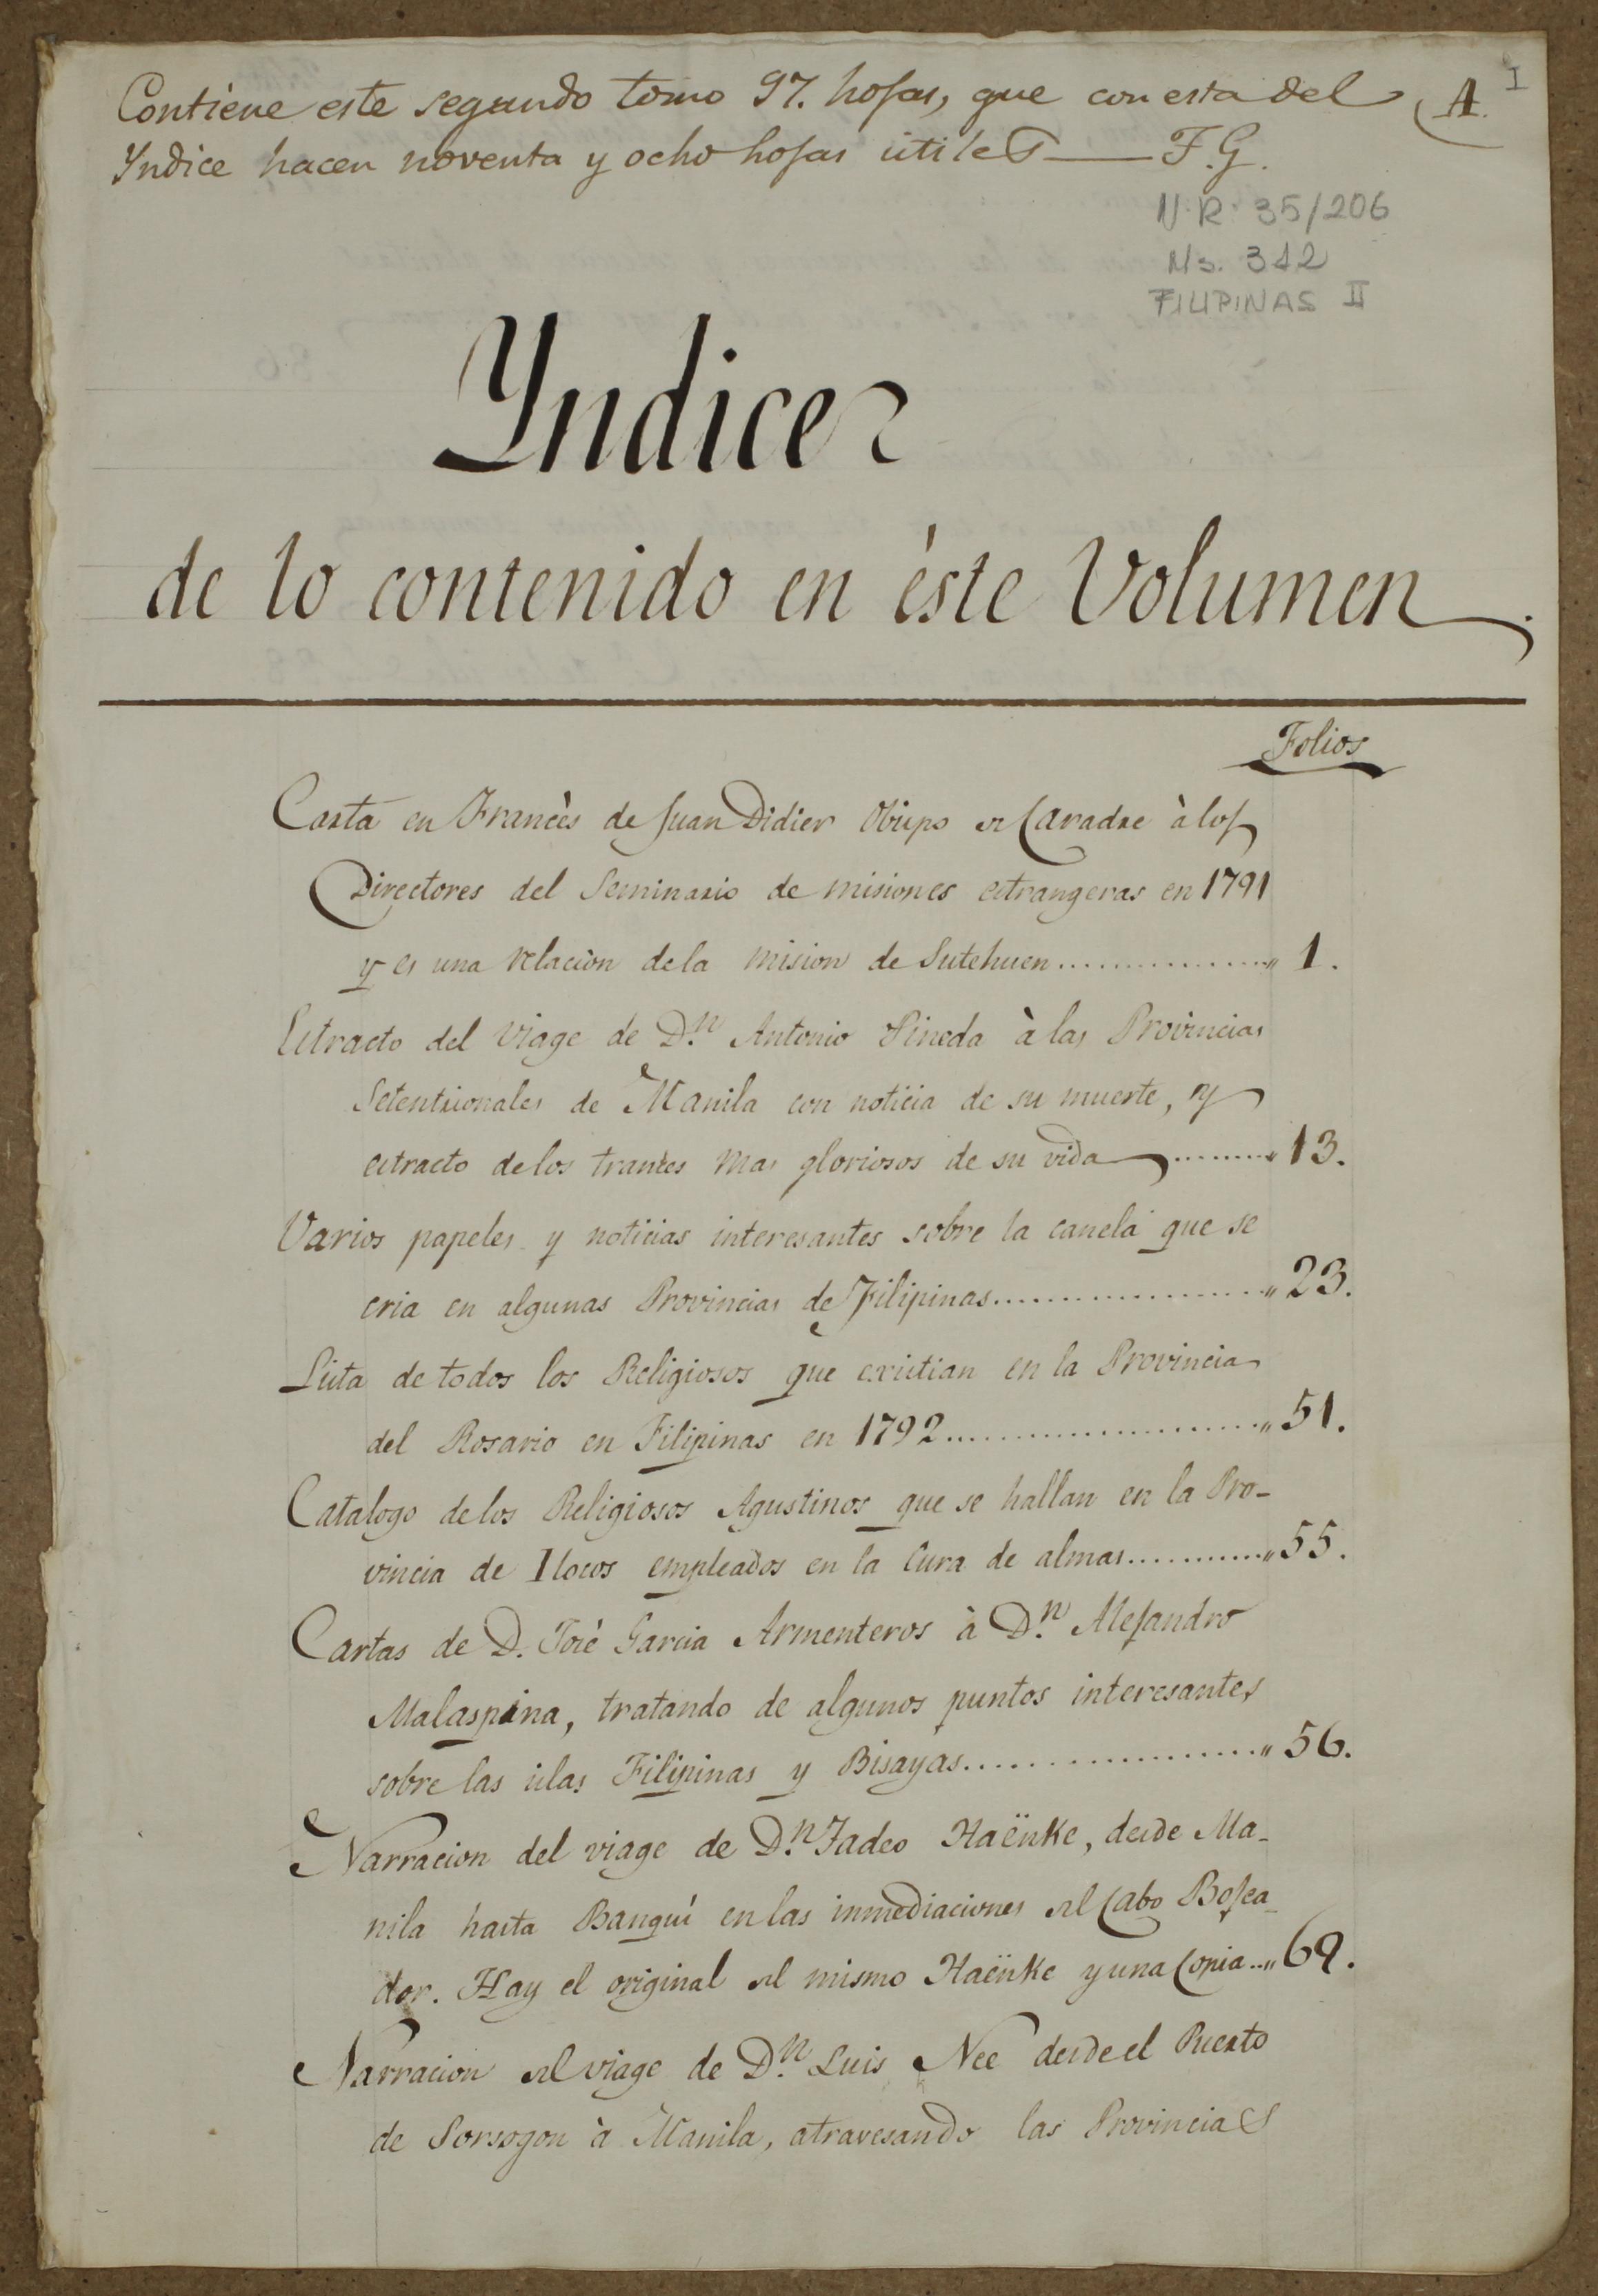 Contiene este segundo tomo 97. hojas, que con esta del
Yndice hacen noventa y ocho hojas utiles — F.G.
A.
I
N.R. 35/206
Ms. 312
FILIPINAS II
Yndice
de lo contenido en éste Volumen.
Folios
Carta en Francès de Juan Didier Obispo de Caradre à los
Directores del Seminario de misiones estrangeras en 1791
y es una relaciòn de la mision de Sutchuen................" 1.
Estracto del viage de D.n Antonio Pineda à las Provincias
Setentrionales de Manila con noticia de su muerte, y
estracto de los trances mas gloriosos de su vida.........." 13.
Varios papeles y noticias interesantes sobre la canela que se
cria en algunas Provincias de Filipinas..................." 23.
Lista de todos los Religiosos que existian en la Provincia
del Rosario en Filipinas en 1792......................" 51.
Catalogo de los Religiosos Agustinos que se hallan en la Pro-
vincia de Ilocos empleados en la Cura de almas............" 55.
Cartas de D. José Garcia Armenteros à D.n Alejandro
Malaspina, tratando de algunos puntos interesantes
sobre las islas Filipinas y Bisayas...................." 56.
Narracion del viage de D.n Tadeo Haënke, desde Ma-
nila hasta Banguí en las inmediaciones del Cabo Bojea-
dor. Hay el original del mismo Haënke y una Copia..." 69.
Narracion del viage de D.n Luis Nee desde el Puerto
de Sorsogon à Manila, atravesando las Provincias